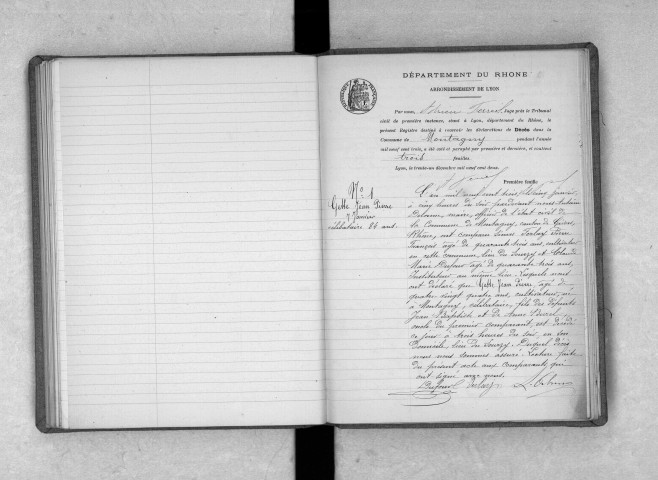 DÉPARTEMENT DU RHONE
ARRONDISSEMENT DE LYON
Par nous, Juge près le Tribunal
civil de première instance, séant à Lyon, département du Rhône, le
présent Registre destiné à recevoir les déclarations de Décès dans la
Commune de Montagny pendant l'année
mil neuf cent trois, a été coté et paraphé par première et dernière, et contient
trois feuilles.
Lyon, le trente-un décembre mil neuf cent deux.
Première feuille
N° 1
Gette Jean Pierre
7 Janvier
célibataire 84 ans.
L'an mil neuf cent trois, janvier,
à cinq heures du soir pardevant nous Antoine
maire, officier de l'état civil de
la Commune de Montagny, canton de Givors,
Rhône, ont comparu Pierre
François âgé de quarante trois ans, cultivateur
en cette commune, lieu du Sourzy et Claude
Marie Dufour âgé de quarante trois ans,
Instituteur au même lieu. Lesquels nous
ont déclaré que Gette Jean Pierre, âgé de
quatre vingt quatre ans, cultivateur, né
à Montagny, célibataire, fils des défunts
Jean Baptiste et de Anne
oncle du premier comparant, est décédé
ce jour à trois heures du soir, en son
domicile, lieu du Sourzy. Duquel décès
nous nous sommes assuré. Lecture faite
du présent acte aux comparants qui
ont signé avec nous.
Dufour